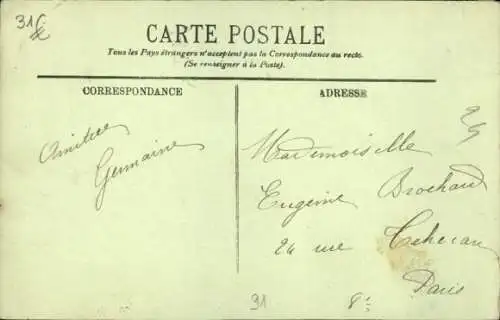 31
CARTE POSTALE
Tous les Pays étrangers n'acceptent pas la Correspondance au recto.
(Se renseigner à la Poste).
CORRESPONDANCE
ADRESSE
Amitiés
Germaine
Mademoiselle
Eugénie Brochard
24 rue
Paris
91